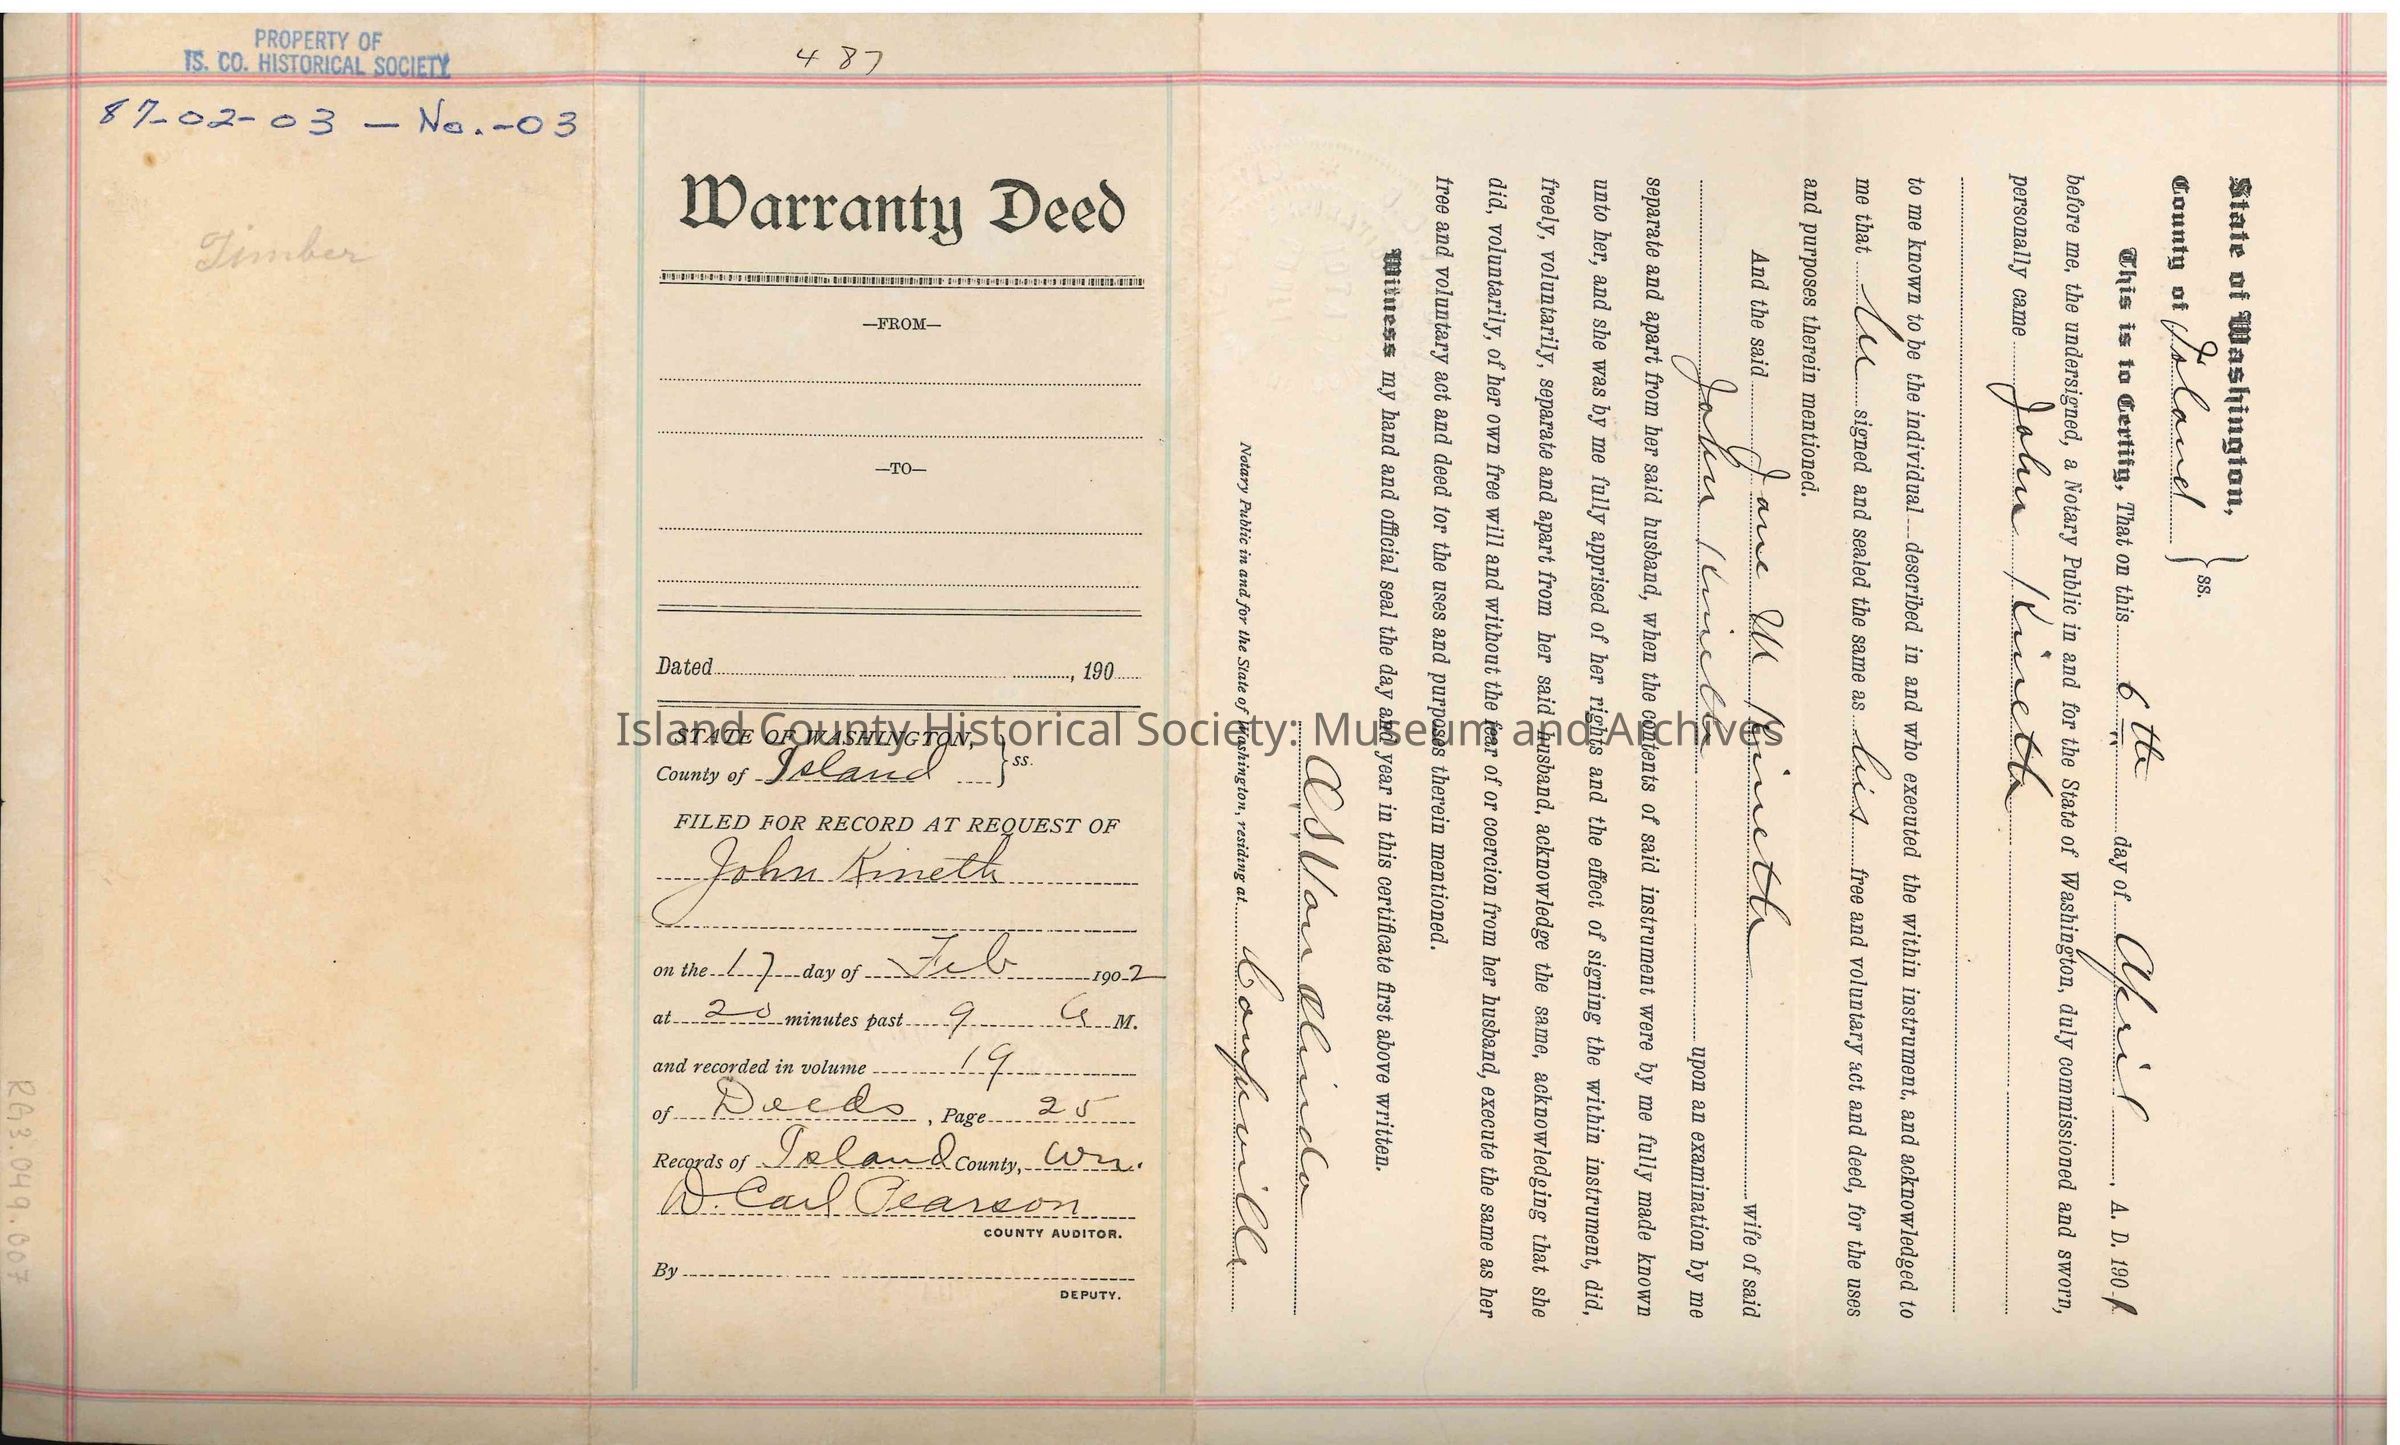 PROPERTY OF
IS. CO. HISTORICAL SOCIETY
87-02-03 – No.-03
Timber
RG3.049.007
487
Warranty Deed
—FROM—
—TO—
Dated , 190
STATE OF WASHINGTON,
County of Island } ss.
FILED FOR RECORD AT REQUEST OF
John Kineth
on the 17 day of Feb 1902
at 20 minutes past 9 A M.
and recorded in volume 19
of Deeds, Page 25
Records of Island County, Wn.
W. Carl Pearson
COUNTY AUDITOR.
By
DEPUTY.
State of Washington,
County of Island } ss.
This is to Certify, That on this 6th day of April, A. D. 1901
before me, the undersigned, a Notary Public in and for the State of Washington, duly commissioned and sworn,
personally came John Kineth
to me known to be the individual described in and who executed the within instrument, and acknowledged to
me that he signed and sealed the same as his free and voluntary act and deed, for the uses
and purposes therein mentioned.
And the said Jane M Kineth wife of said
John Kineth upon an examination by me
separate and apart from her said husband, when the contents of said instrument were by me fully made known
unto her, and she was by me fully apprised of her rights and the effect of signing the within instrument, did,
freely, voluntarily, separate and apart from her said husband, acknowledge the same, acknowledging that she
did, voluntarily, of her own free will and without the fear of or coercion from her husband, execute the same as her
free and voluntary act and deed for the uses and purposes therein mentioned.
Witness my hand and official seal the day and year in this certificate first above written.
Notary Public in and for the State of Washington, residing at Coupeville
Island County Historical Society: Museum and Archives